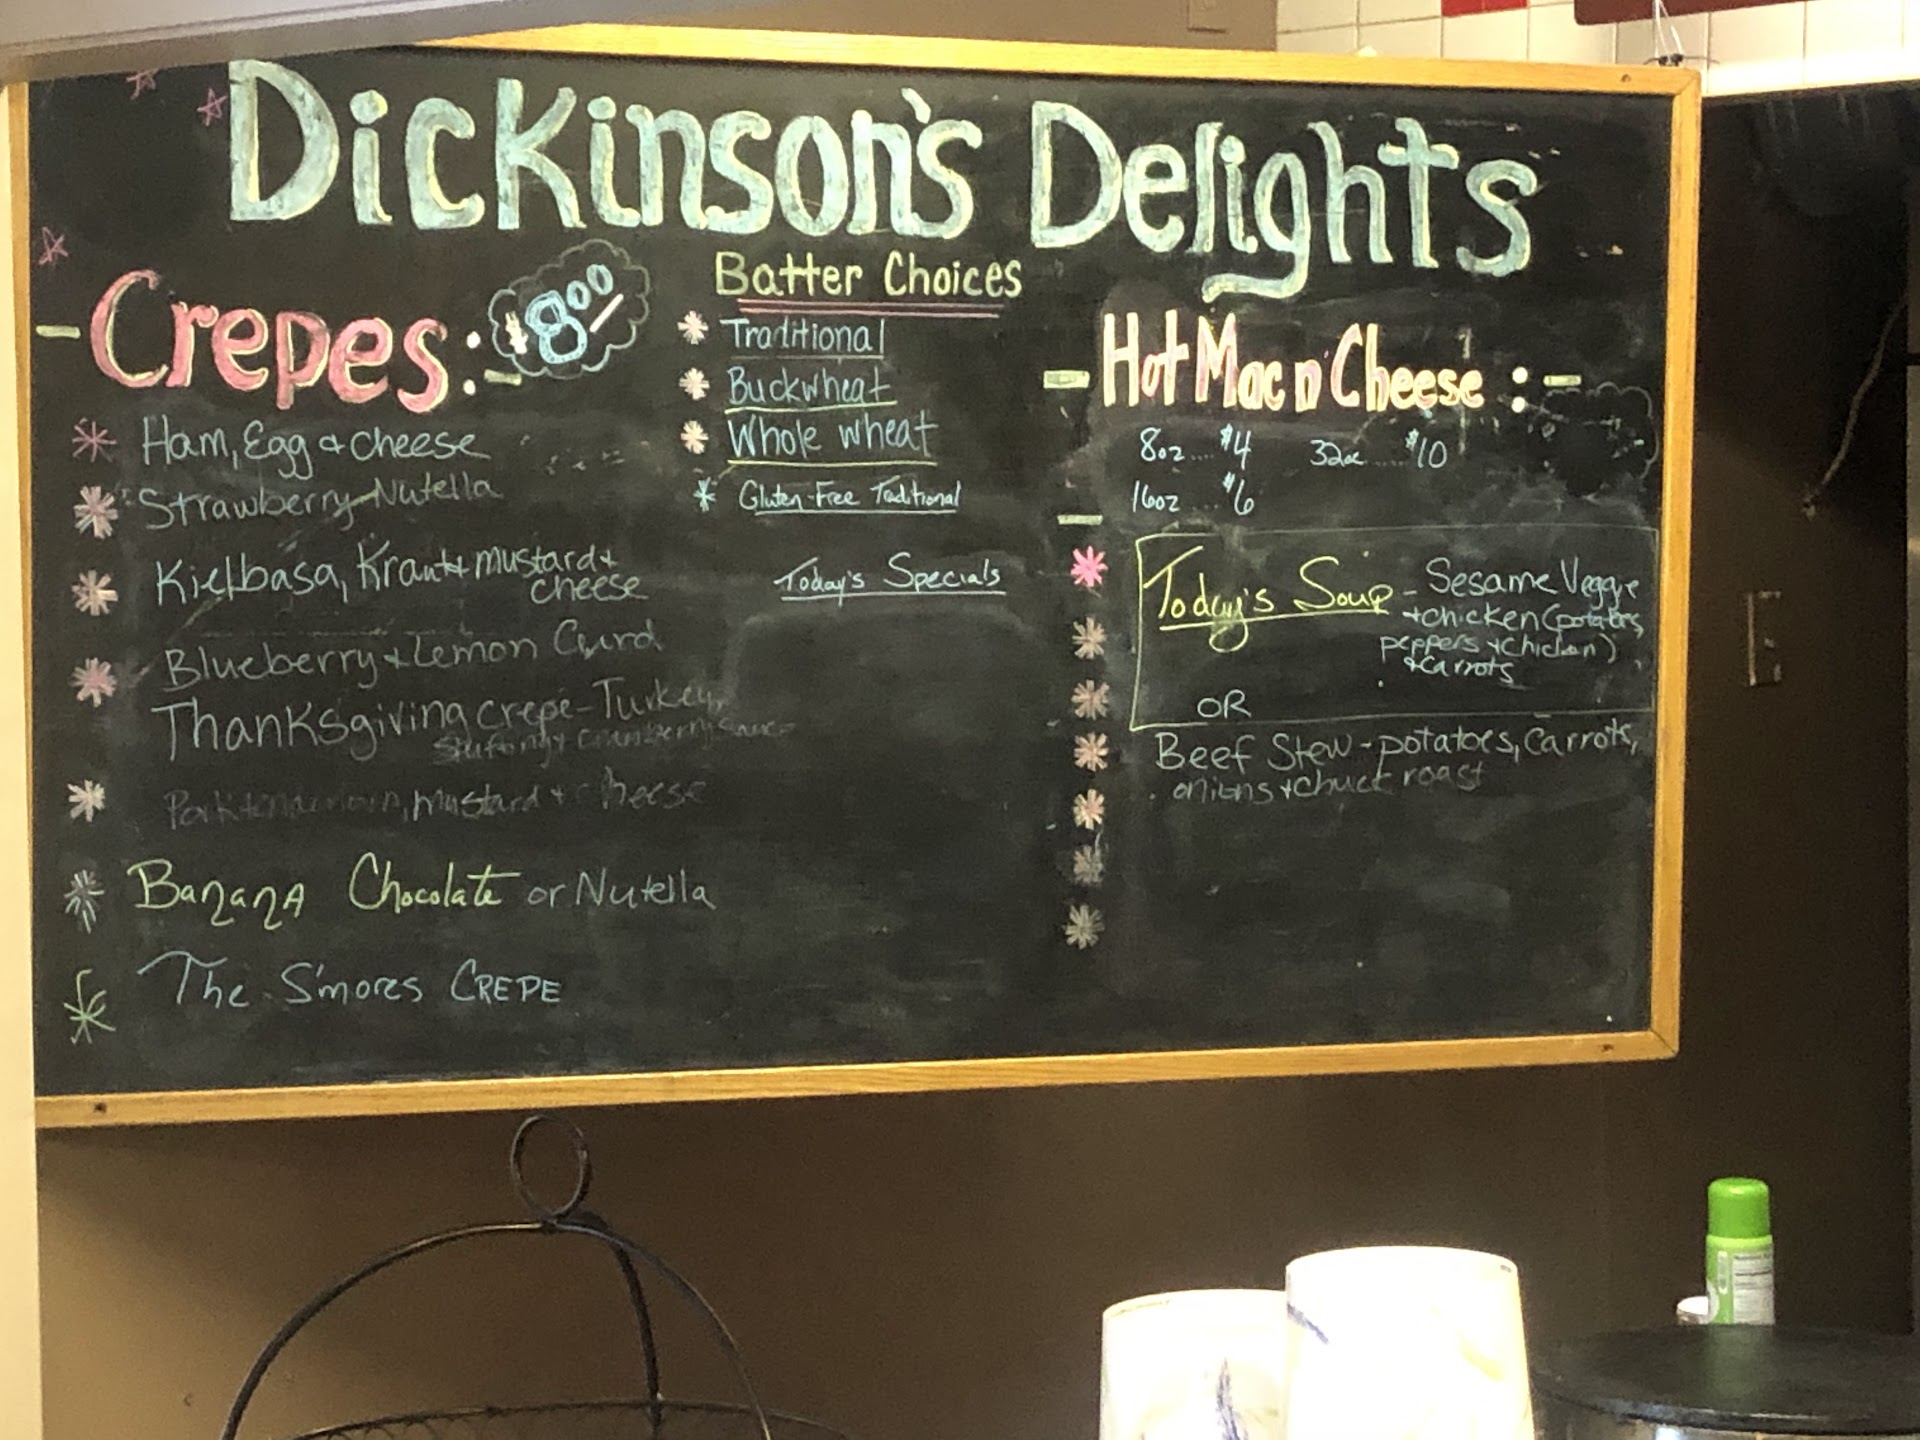 Dickinson's Delights
- Crepes: - $8.00
* Ham, Egg & cheese
* Strawberry-Nutella
* Kielbasa, Kraut & mustard &
cheese
* Blueberry & Lemon Curd
Thanksgiving crepe - Turkey,
stuffing & cranberry sauce
* Pork tenderloin, mustard & cheese
* Banana Chocolate or Nutella
* The S'mores CREPE
Batter Choices
* Traditional
* Buckwheat
* Whole wheat
* Gluten-Free Traditional
Today's Specials
- Hot Mac n' Cheese : -
8oz .... $4 32oz ..... $10
16oz .... $6
Today's Soup - Sesame Veggie
+ chicken (potatoes,
peppers + chicken)
& carrots
OR
Beef Stew - potatoes, carrots,
onions + chuck roast